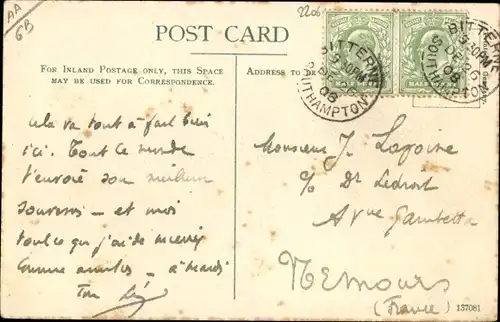 AA
6B
2206
POST CARD
FOR INLAND POSTAGE ONLY, THIS SPACE
MAY BE USED FOR CORRESPONDENCE.
ADDRESS TO BE
BITTERNE
SOUTHAMPTON
08
BITTERNE
SOUTHAMPTON
08
Cela va tout à fait bien
ici. Tout le monde
t'envoie son meilleur
souvenir - et moi
tout ce que j'ai de
comme - à mardi
Ton
Monsieur J. Lapoire
c/o Dr Ledroit
Avue Gambetta
Nemours
(France)
137081